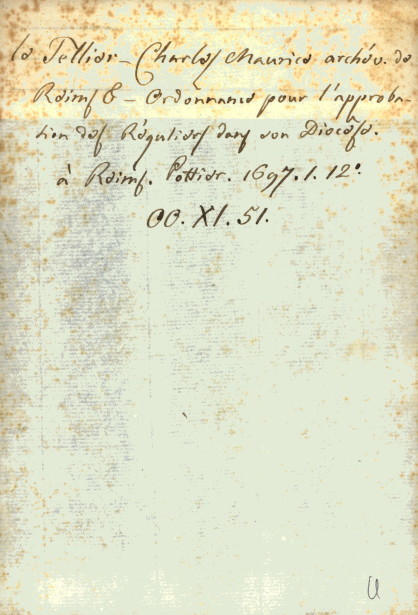 le Tellier - Charles Maurice archév. de
Reims & - Ordonnance pour l'approba-
tion des Réguliers dans son Diocèse.
à Reims. Pottier. 1697. 1. 12°.
OO. XI. 51.